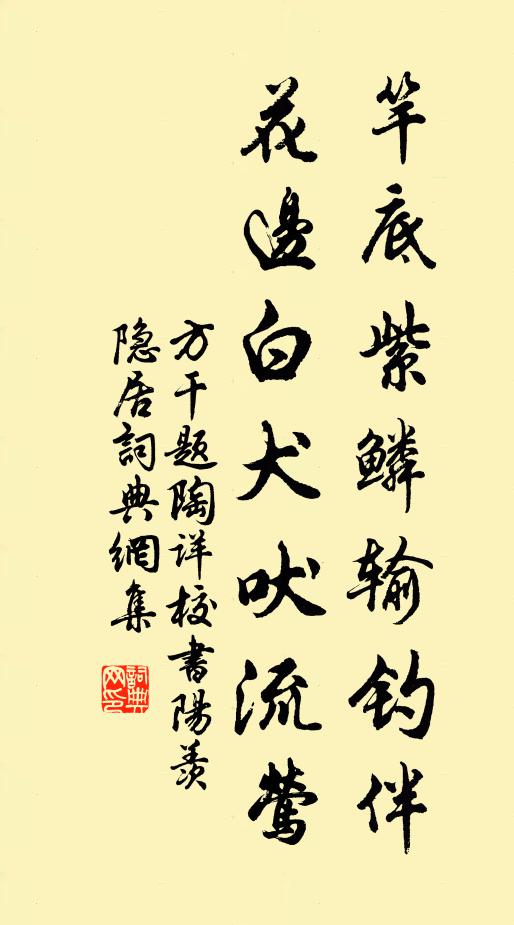 竿底紫鱗输钓伴
花邊白犬吠流鶯
方干题陶详校書陽羨
隐居詞典網集
詞典网印